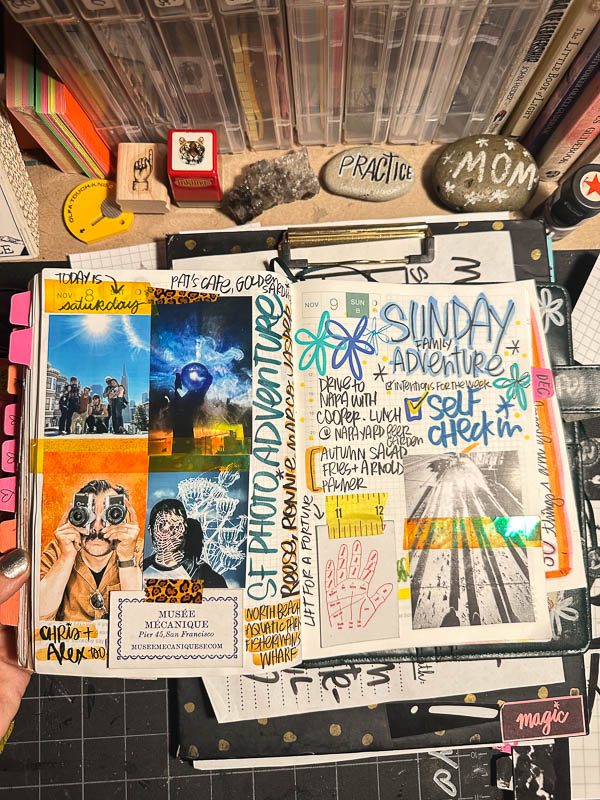 The Little Book of Light
OLFA TOUCH-KNIFE
PRACTICE
MOM
TODAY IS
NOV 8
saturday
PAT'S CAFE, GOLDEN
SF PHOTO ADVENTURE
CHRIS +
Alex TOO
MUSÉE
MÉCANIQUE
Pier 45, San Francisco
MUSEEMECANIQUESF.COM
NORTH BEACH
AQUATIC PARK
FISHERMAN'S
WHARF
NOV 9 SUN
8
SUNDAY
FAMILY
ADVENTURE
INTENTIONS FOR THE WEEK
SELF
CHECK IN
DRIVE TO
NAPA WITH
COOPER. LUNCH
@ NAPA YARD BEER
GARDEN
AUTUMN SALAD
FRIES + ARNOLD
PALMER
LIFT FOR A FORTUNE
11 12
DEC
magic